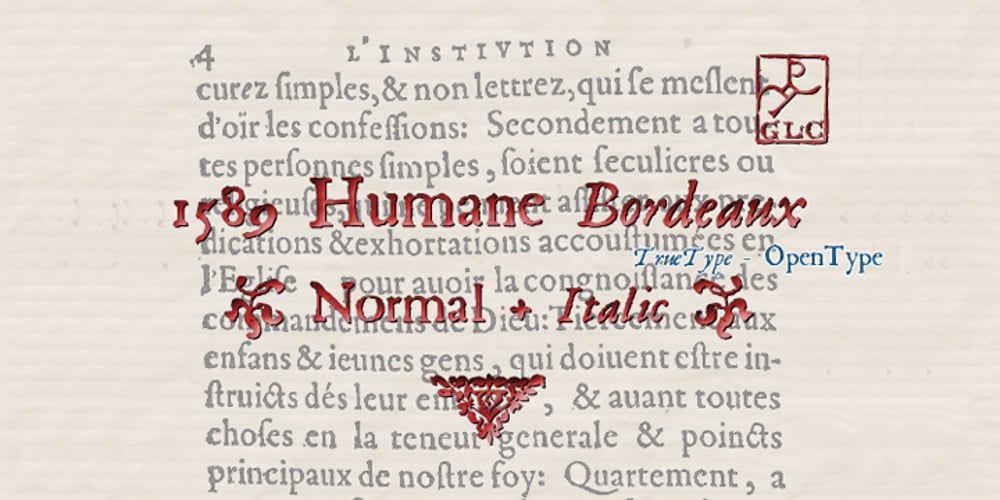 4 L'INSTIVTION
curez ſimples, & non lettrez, qui ſe meſlent
GLC
d'oïr les confeſſions: Secondement a tou
tes perſonnes ſimples, ſoient ſeculieres ou
1589 Humane Bordeaux
dications & exhortations accouſtumées en
TrueType - OpenType
l'Egliſe pour auoir la congnoiſſance des
Normal + Italic
Dieu:
enfans & ieunes gens, qui doiuent eſtre in-
ſtruicts dés leur en , & auant toutes
choſes en la teneur generale & poincts
principaux de noſtre foy: Quartement, a